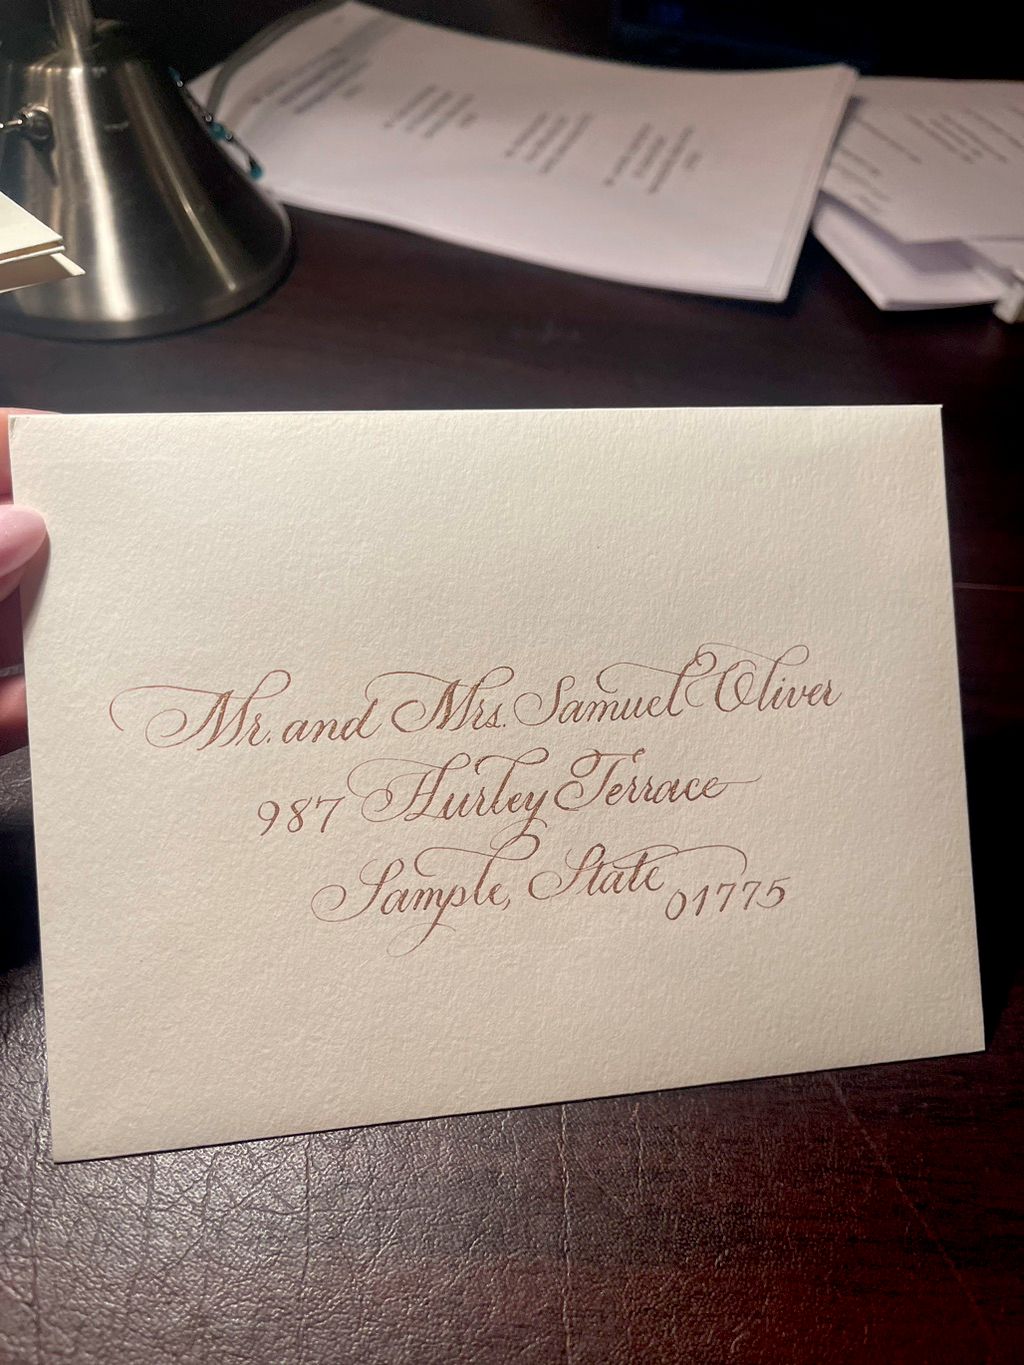 Mr. and Mrs. Samuel Oliver
987 Hurley Terrace
Sample, State 01775